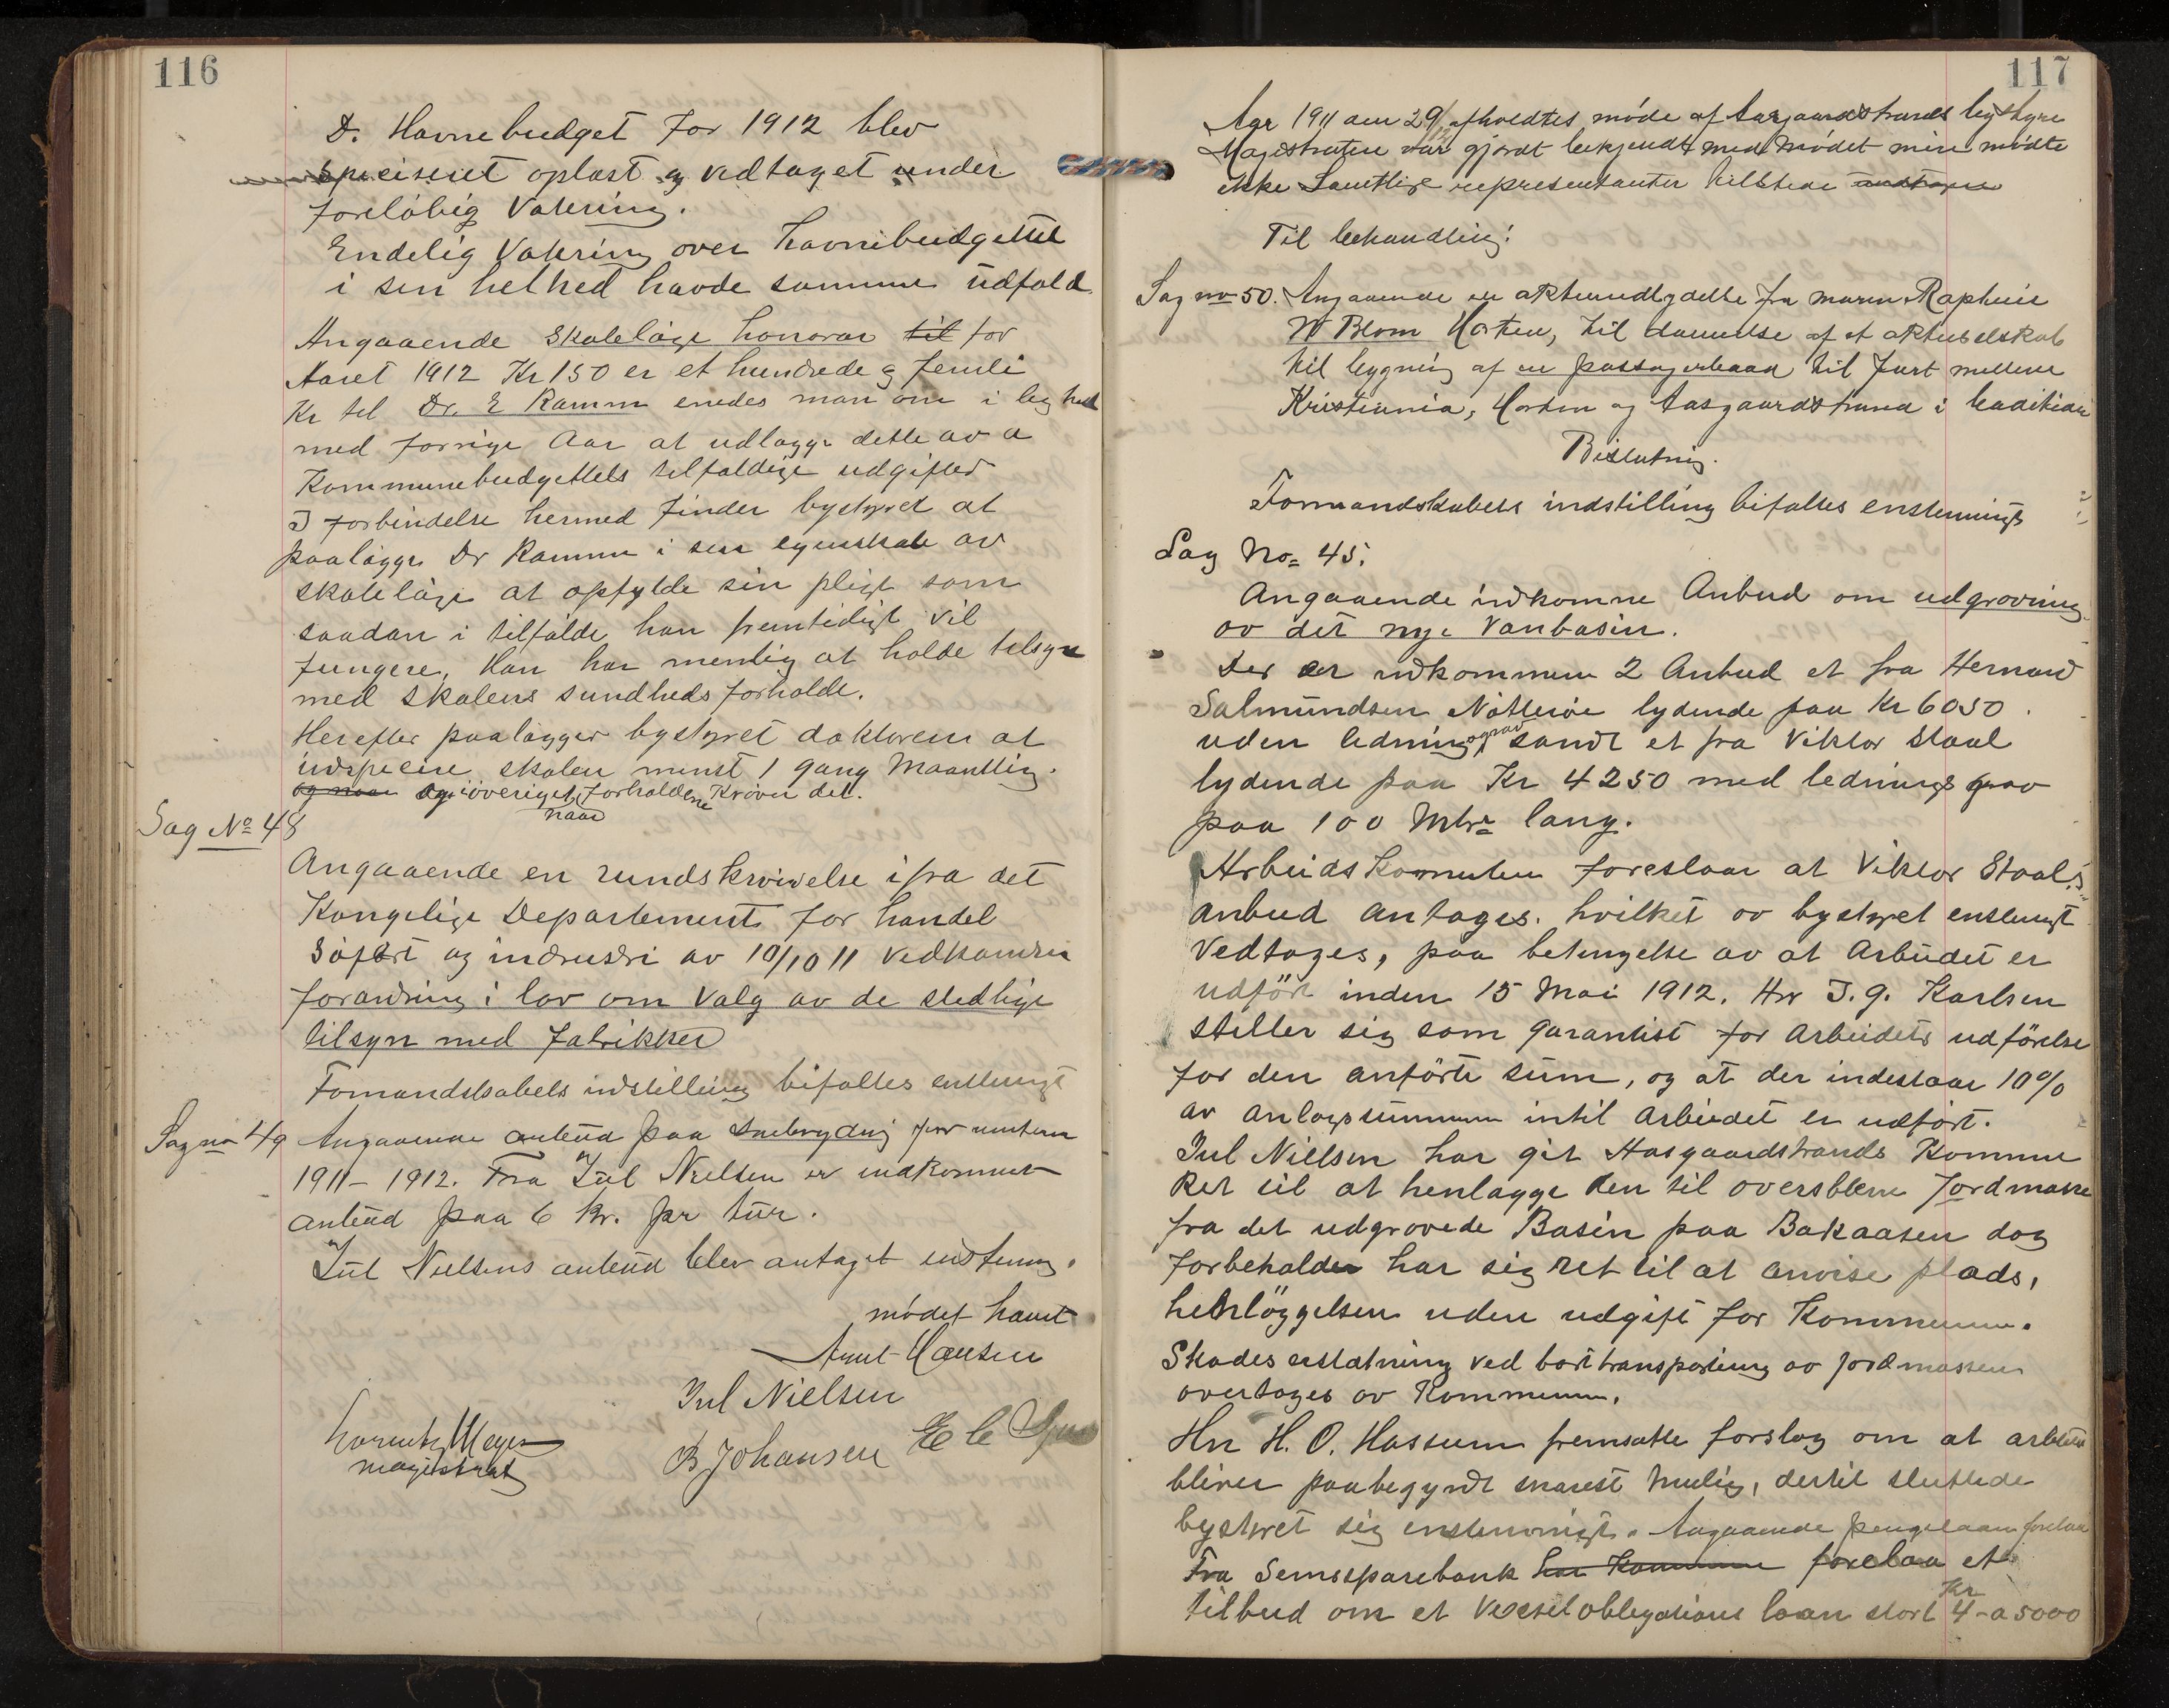 116
D. Havnebudget for 1912 blev
Speciseret oplæst og vedtaget under
foreløbig Votering.
Endelig Votering over Havnebudgettet
i sin helhed havde samme udfald
Angaaende Skolelæge honorar til for
Aaret 1912 Kr 150 er et hundrede og femti
Kr til Dr. E Ramm enedes man om i lighed
med forrige Aar at udlægge dette av a
Kommunebudgettets tilfældige udgifter
I forbindelse hermed finder bystyret at
paalægge Dr Ramm i sin egenskab av
skolelæge at opfylde sin pligt som
saadan i tilfælde han fremtidigt vil
fungere, Han har menlig at holde tilsyn
med skolens sundhedsforholde.
Herefter paalægger bystyret doktoren at
indspecere skolen minst 1 gang Maantlig.
og naar og iøveriget forholdene Kræver det.
naar
Sag No 48
Angaaende en rundskrivelse ifra det
Kongelige Departement for handel
Søfart og indrustri av 10/10 11 vedkommen
forandring i lov om Valg av de stedlige
tilsyn med fabrikker
Fomandskabets indstilling bifaltes enstemigt
Sag no 49 Angaaende anbud paa Snebrydning for vintern
1911 - 1912. Fra Jul Nielsen er indkommet
anbud paa 6 kr. pr tur.
Jul Nielsens anbud blev antaget enstemig.
mødet hævet
Arnt Hansen
Jul Nielsen
Lorentz Meyer
magistrat
B Johansen E C
117
Aar 1911 den 29/12 afholdtes møde af Aasgaardstrands bystyre
Magistraten var gjordt bekjendt med Mødet men mødte
ikke Samtlige representanter tilstede
Til behandling:
Sag no 50. Angaaende en aktieindbydelse fra
W Blom Horten, til dannelse af et aktieselskab
til bygning af en passagerbaad til fart mellem
Kristiania, Horten og Aasgaardstrand i badetiden
Beslutning.
Formandskabets indstilling bifaltes enstemmigt
Sag No. 45.
Angaaende indkomne Anbud om udgravning
av det nye Vanbasin.
Der er indkommen 2 Anbud et fra Herman
Salmundsen Nøtterøe lydende paa Kr 6050.
uden lednings grav samt et fra Viktor Staal
lydende paa Kr 4250 med lednings grav
paa 100 Mtr lang.
Arbeidskomiteen foreslaar at Viktor Staal's
anbud antages. hvilket av bystyret enstemigt
Vedtages, paa betingelse av at Arbeidet er
udført inden 15 Mai 1912. Hr J. G. Karlsen
stiller sig som garantist for Arbeidets udførelse
for den anførte sum, og at der indestaar 10%
av anlægsummen intil arbeidet er udført.
Jul Nielsen har git Aasgaardstrands Komune
Ret til at henlægge den til oversblevne Jordmasse
fra det udgravede Basin paa Bakaasen dog
forbeholder har sig ret til at anvise plads,
henlæggelsen uden udgift for Kommunen.
Skades erstatning ved borttransportering av jordmassen
overtages av Kommunen.
Hr H. O. Hassum fremsatte forslag om at arbeidet
bliver paabegyndt snarest Mulig, dertil sluttede
bystyret sig enstemmigt. Angaaende pengelaan forelaa
Fra Semssparebank har Kommunen forelaa et
tilbud om et Vexselobligations laan stort Kr 4-a 5000